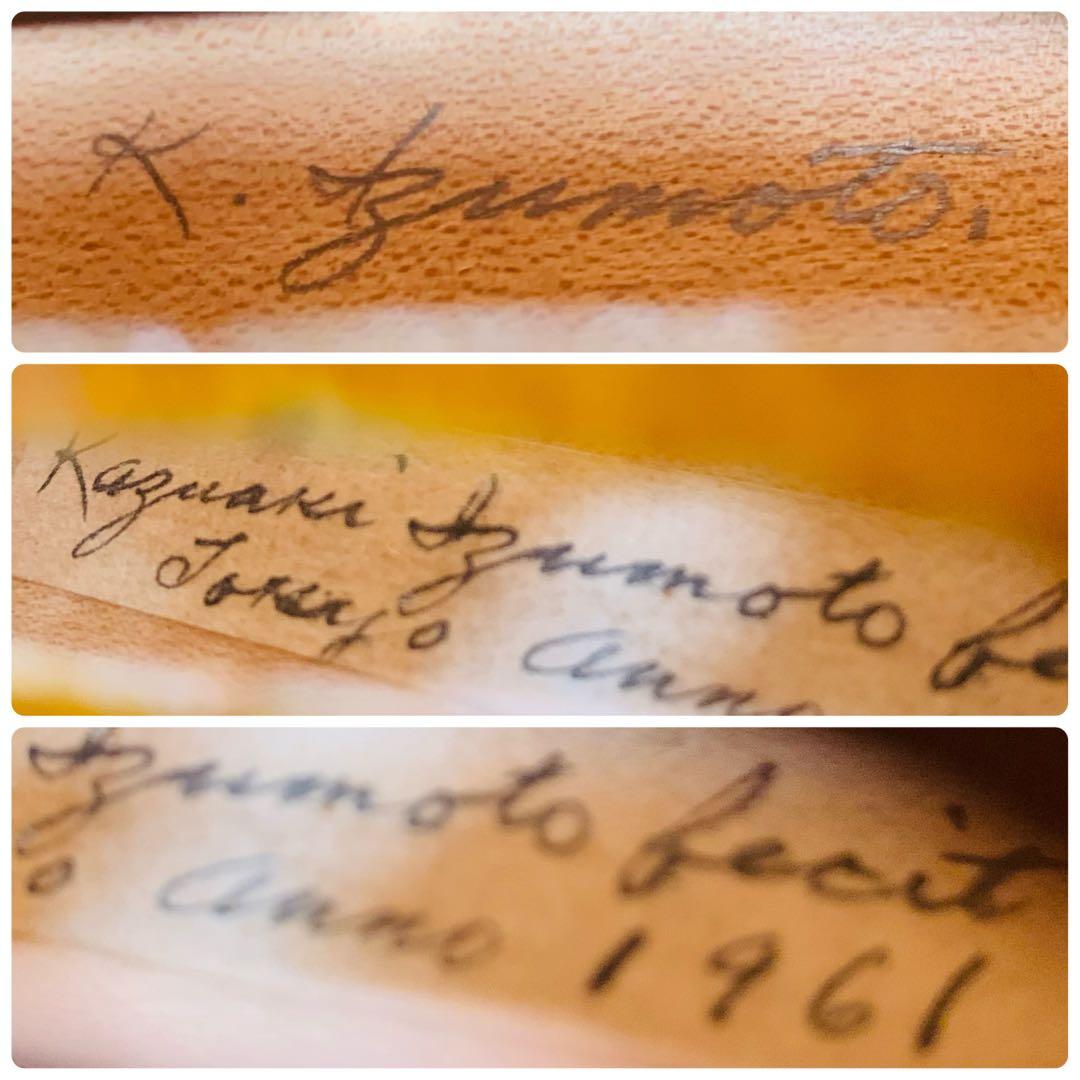 K. Izumoto.
Kazuaki Izumoto fe
Tokyo Anno
Izumoto fecit
o Anno 1961